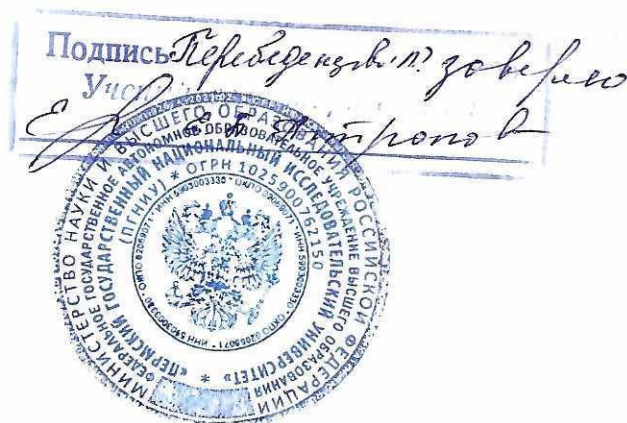 Подпись Переведенцева заверяю
Учен
Е.А. Антропов
МИНИСТЕРСТВО НАУКИ И ВЫСШЕГО ОБРАЗОВАНИЯ РОССИЙСКОЙ ФЕДЕРАЦИИ
ФЕДЕРАЛЬНОЕ ГОСУДАРСТВЕННОЕ АВТОНОМНОЕ ОБРАЗОВАТЕЛЬНОЕ УЧРЕЖДЕНИЕ ВЫСШЕГО ОБРАЗОВАНИЯ
«ПЕРМСКИЙ ГОСУДАРСТВЕННЫЙ НАЦИОНАЛЬНЫЙ ИССЛЕДОВАТЕЛЬСКИЙ УНИВЕРСИТЕТ»
(ПГНИУ) * ОГРН 1025900762150 *
ОКПО 02069071 * ИНН 5903003330 * ОКПО 02069071 * ИНН 5903003330 * ОКПО 02069071 * ИНН 5903003330